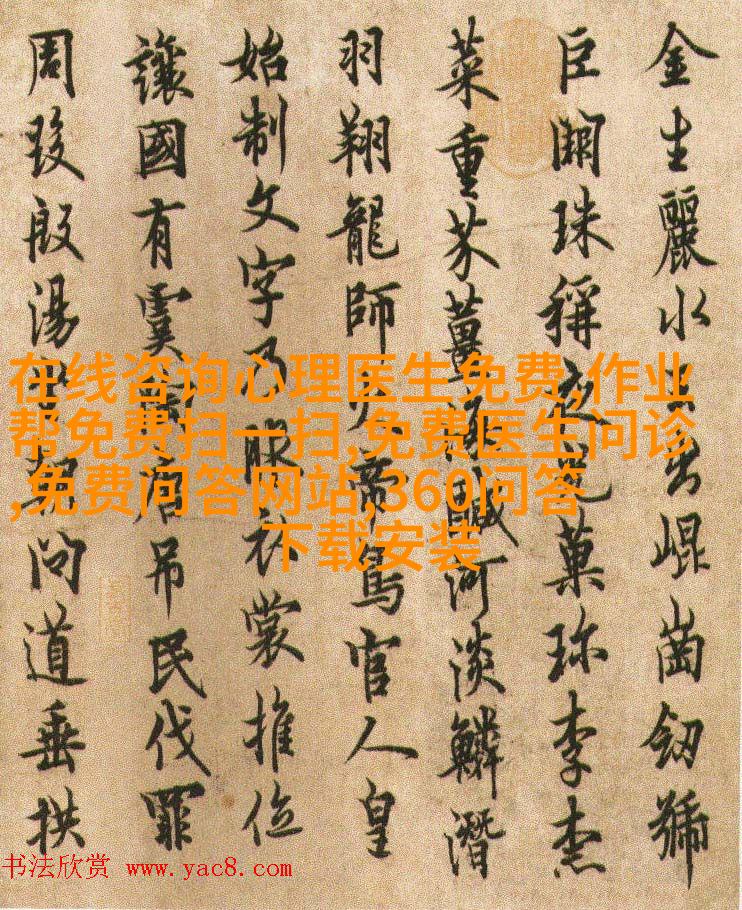 金生麗水玉出崐崗劒號
巨闕珠稱夜光菓珎李柰
菜重芥薑海醎河淡鱗潛
羽翔龍師火帝鳥官人皇
始制文字乃服衣裳推位
讓國有虞陶唐吊民伐罪
周發殷湯坐朝問道垂拱
在线咨询心理医生免费,作业
帮免费扫一扫,免费医生问诊
,免费问答网站,360问答
下载安装
书法欣赏 www.yac8.com